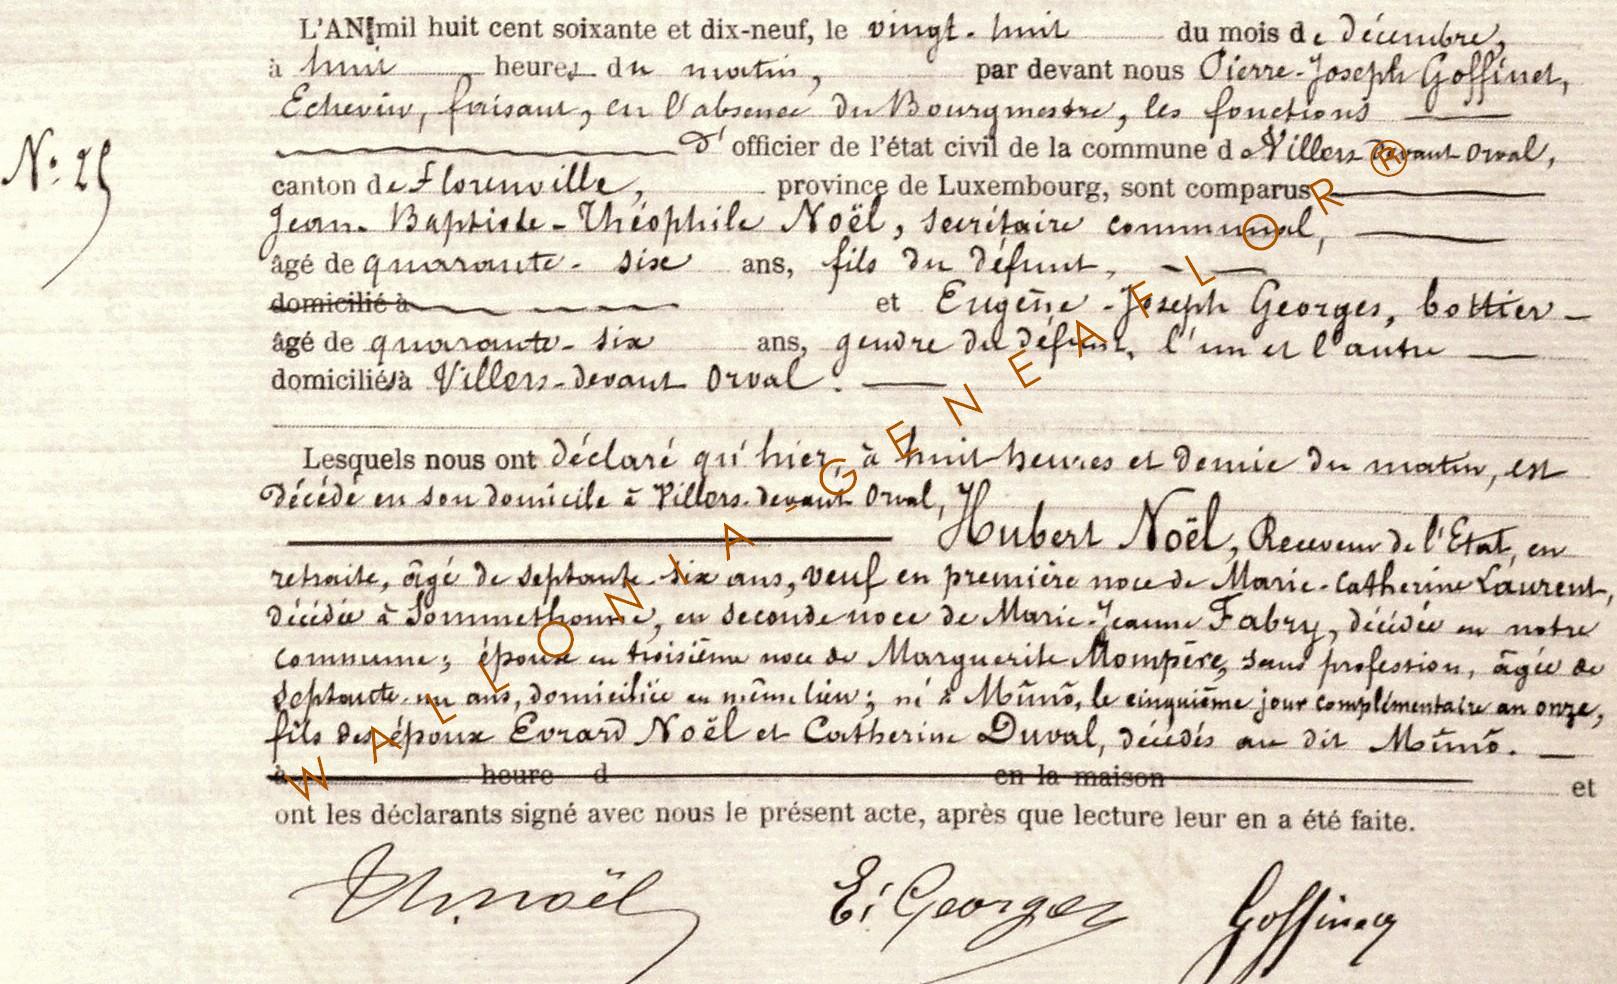 L'AN mil huit cent soixante et dix-neuf, le vingt-huit du mois de décembre,
à huit heures du matin, par devant nous Pierre-Joseph Goffinet,
Echevin, faisant, en l'absence du Bourgmestre, les fonctions
d'officier de l'état civil de la commune de Villers devant Orval,
N° 25
canton de Florenville, province de Luxembourg, sont comparus
Jean-Baptiste-Théophile Noël, secrétaire communal,
âgé de quarante-six ans, fils du défunt,
domicilié à et Eugène-Joseph Georges, bottier
âgé de quarante-six ans, gendre du défunt, l'un et l'autre
domiciliés à Villers-devant Orval.
Lesquels nous ont déclaré qu'hier, à huit heures et demie du matin, est
décédé en son domicile à Villers-devant Orval,
Hubert Noël, Receveur de l'Etat, en
retraite, âgé de septante-six ans, veuf en première noce de Marie-Catherine Laurent,
décédée à Sommethonne, en seconde noce de Marie-Jeanne Fabry, décédée en notre
commune; époux en troisième noce de Marguerite Mompère, sans profession, âgée de
septante-un ans, domiciliée en même lieu; né à Muno, le cinquième jour complémentaire an onze,
fils des époux Evrard Noël et Catherine Duval, décédés au dit Muno.
à heure d en la maison et
ont les déclarants signé avec nous le présent acte, après que lecture leur en a été faite.
Th. Noël E. Georges Goffinet
WALLONIA-GENEAFLOR®